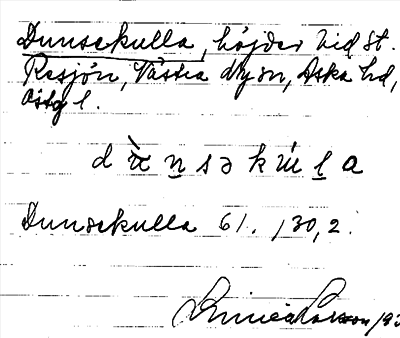 Dunsekulla, höjder vid St.
Resjön, Västra Ny sn, Aska hd,
Östg l.
d n s ə k l a
Dunsekulla 61. 130, 2.
Larsson